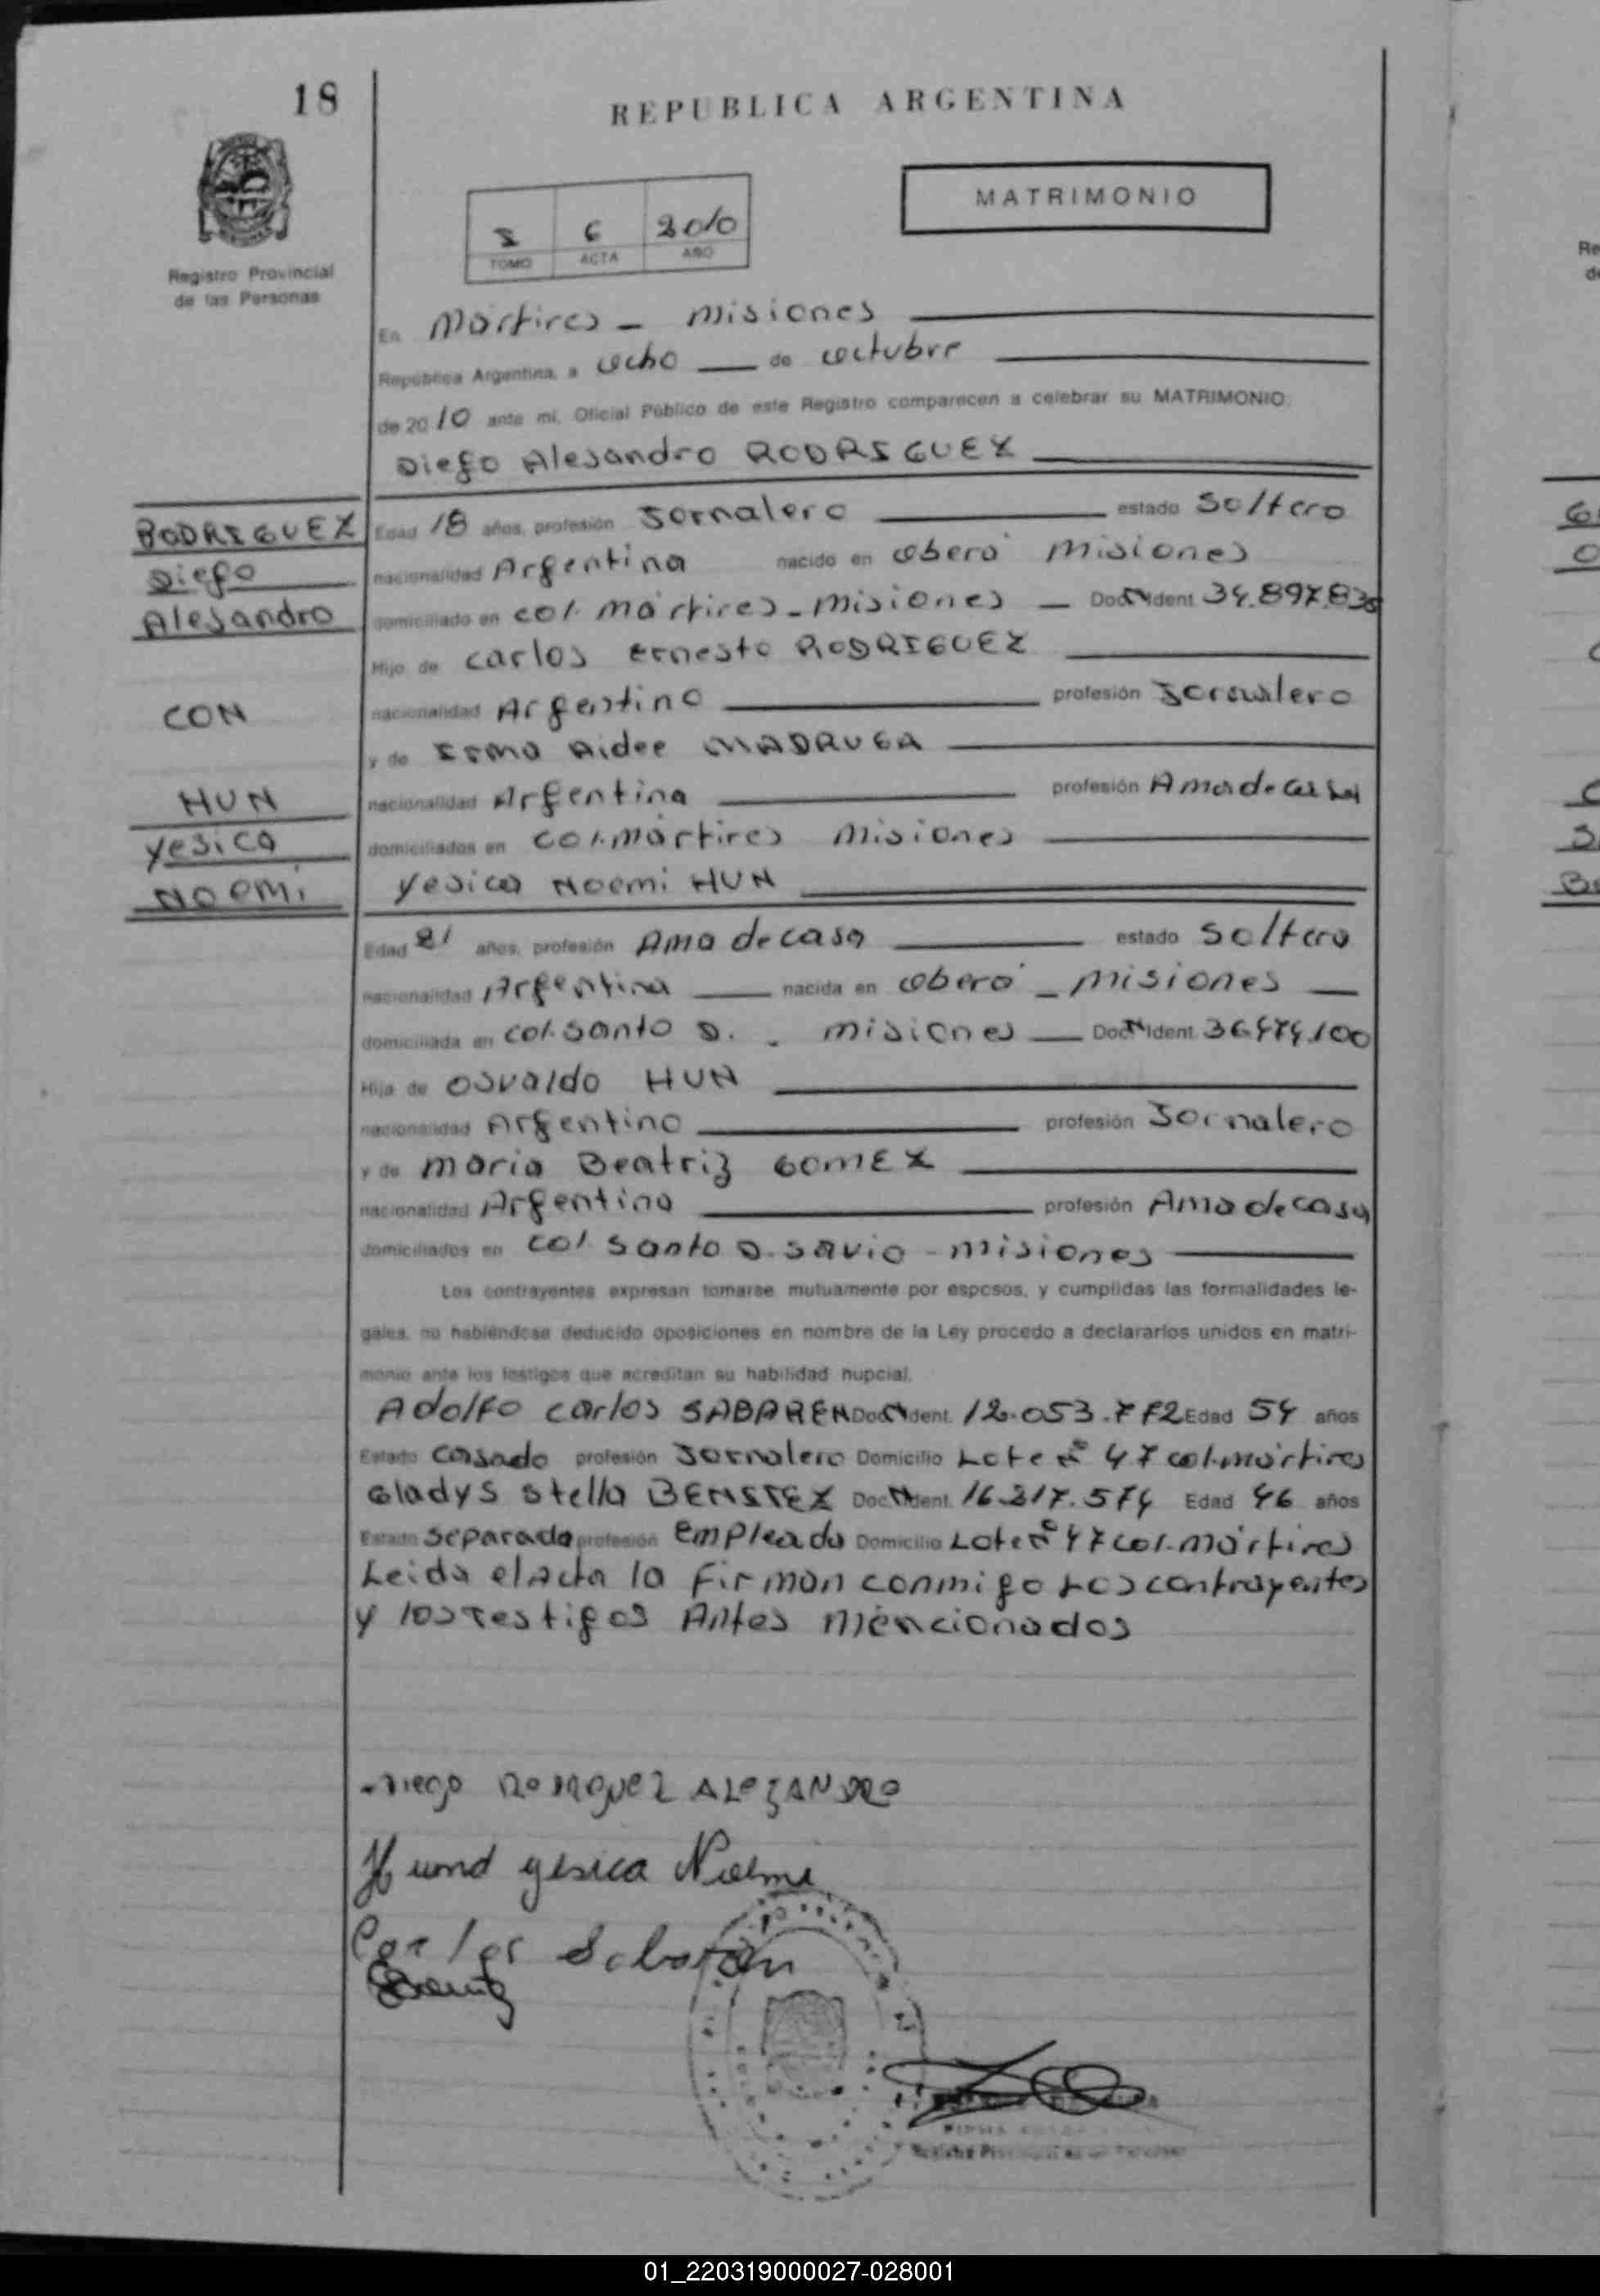 18
REPUBLICA ARGENTINA
MATRIMONIO
I 6 2010
TOMO ACTA AÑO
Registro Provincial
de las Personas
En Mártires - Misiones
República Argentina, a ocho de octubre
de 2010 ante mi, Oficial Público de este Registro comparecen a celebrar su MATRIMONIO:
Diego Alejandro RODRIGUEZ
RODRIGUEZ
Diego
Alejandro
CON
HUN
Yesica
Noemi
Edad 18 años, profesión Jornalero estado Soltero
nacionalidad Argentina nacido en Oberá Misiones
domiciliado en Col. Mártires - Misiones Doc Ident. 34.897.830
Hijo de Carlos Ernesto RODRIGUEZ
nacionalidad Argentino profesión Jornalero
y de Irma Aidee MADRUGA
nacionalidad Argentina profesión Ama de casa
domiciliados en Col. Mártires Misiones
Yesica Noemi HUN
Edad 21 años, profesión Ama de casa estado Soltera
nacionalidad Argentina nacida en Oberá - Misiones
domiciliada en Col. Santo D. - Misiones Doc Ident. 36.474.100
Hija de Osvaldo HUN
nacionalidad Argentino profesión Jornalero
y de Maria Beatriz GOMEZ
nacionalidad Argentina profesión Ama de casa
domiciliados en Col. Santo D. Savio - Misiones
Los contrayentes expresan tomarse mutuamente por esposos, y cumplidas las formalidades le-
gales, no habiéndose deducido oposiciones en nombre de la Ley procedo a declararlos unidos en matri-
monio ante los testigos que acreditan su habilidad nupcial.
Adolfo Carlos SABAREN Doc Ident. 12.053.772 Edad 54 años
Estado Casado profesión Jornalero Domicilio Lote Nº 47 Col. Mártires
Gladys Stella BENITEZ Doc Ident. 16.217.574 Edad 46 años
Estado Separada profesión Empleada Domicilio Lote Nº 47 Col. Mártires
Leida el Acta la Firman conmigo Los contrayentes
y los Testigos Antes Mencionados
Diego Rodriguez Alejandro
Hund yesica Noemi
Carlos Sabaren
Registro Provincial de las Personas
01_220319000027-028001